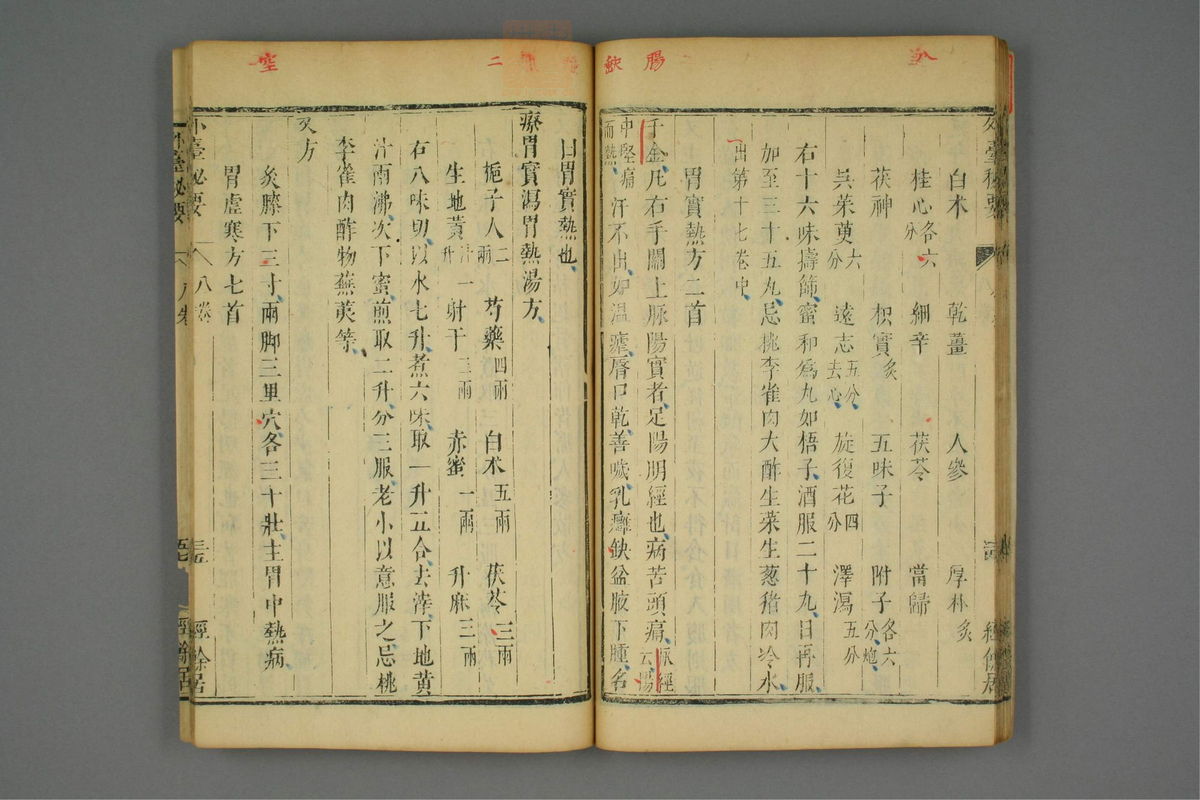 外臺秘要
白术 乾薑 人參 厚朴炙
桂心各六分 細辛 茯苓 當歸
茯神 枳實炙 五味子 附子各六分炮
吳茱萸六分 遠志五分去心 旋復花四分 澤瀉五分
右十六味擣篩蜜和爲丸如梧子酒服二十丸日再服
加至三十五丸忌桃李雀肉大酢生菜生葱猪肉冷水
出第十七卷中
胃實熱方二首
千金凡右手關上脉陽實者足陽明經也病苦頭痛脉經云腸
中堅痛而熱汗不出如温瘧脣口乾善噦乳癰缺盆腋下腫名
曰胃實熱也
療胃實瀉胃熱湯方
梔子人二兩 芍藥四兩 白术五兩 茯苓三兩
生地黄汁一升 射干三兩 赤蜜一兩 升麻三兩
右八味切以水七升煮六味取一升五合去滓下地黄
汁兩沸次下蜜煎取二升分三服老小以意服之忌桃
李雀肉酢物蕪荑等
灸方
灸膝下三寸兩脚三里穴各三十壯主胃中熱病
胃虛寒方七首
外臺秘要 八卷 三五 經餘居
空
二
缺
腸